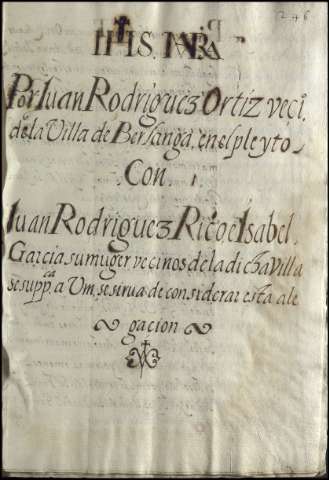 IHS. MRA
Por Iuan Rodriguez Ortiz veci.º
de la Villa de Berlanga, en el pleyto
Con
Iuan Rodriguez Rico, e Isabel
Garcia, su muger vecinos de la dicha Villa
se supp.ca a Vm, se sirua de considerar esta ale
gacion